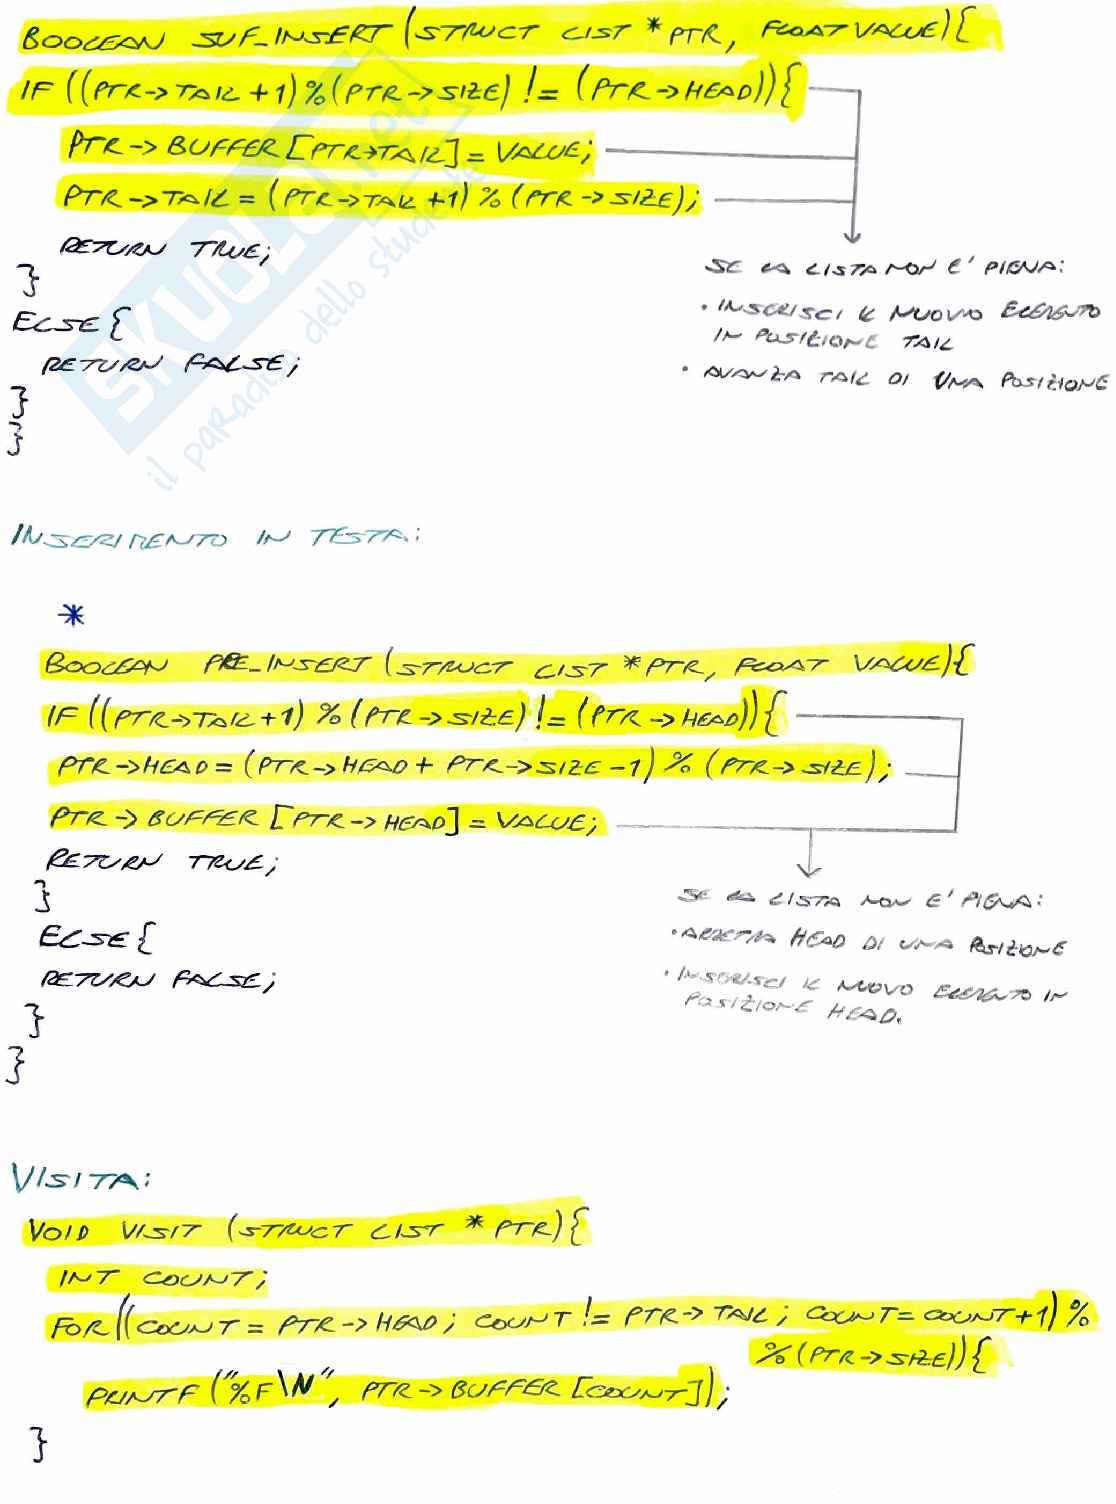 BOOLEAN SUF_INSERT (STRUCT LIST * PTR, FLOAT VALUE){
IF ((PTR->TAIL + 1) % (PTR->SIZE) != (PTR->HEAD)){
PTR -> BUFFER [PTR->TAIL] = VALUE;
PTR->TAIL = (PTR->TAIL + 1) % (PTR->SIZE);
RETURN TRUE;
}
ELSE {
RETURN FALSE;
}
}
SE LA LISTA NON E' PIENA:
• INSERISCI IL NUOVO ELEMENTO
IN POSIZIONE TAIL
• AVANZA TAIL DI UNA POSIZIONE
SKUOLA.net
il paradiso dello studente
INSERIMENTO IN TESTA:
*
BOOLEAN PRE_INSERT (STRUCT LIST * PTR, FLOAT VALUE){
IF ((PTR->TAIL + 1) % (PTR->SIZE) != (PTR->HEAD)){
PTR->HEAD = (PTR->HEAD + PTR->SIZE - 1) % (PTR->SIZE);
PTR -> BUFFER [PTR->HEAD] = VALUE;
RETURN TRUE;
}
ELSE {
RETURN FALSE;
}
}
SE LA LISTA NON E' PIENA:
• ARRETRA HEAD DI UNA POSIZIONE
• INSERISCI IL NUOVO ELEMENTO IN
POSIZIONE HEAD.
VISITA:
VOID VISIT (STRUCT LIST * PTR){
INT COUNT;
FOR ((COUNT = PTR->HEAD; COUNT != PTR->TAIL; COUNT = COUNT + 1) %
% (PTR->SIZE)){
PRINTF ("%F\N", PTR->BUFFER [COUNT]);
}